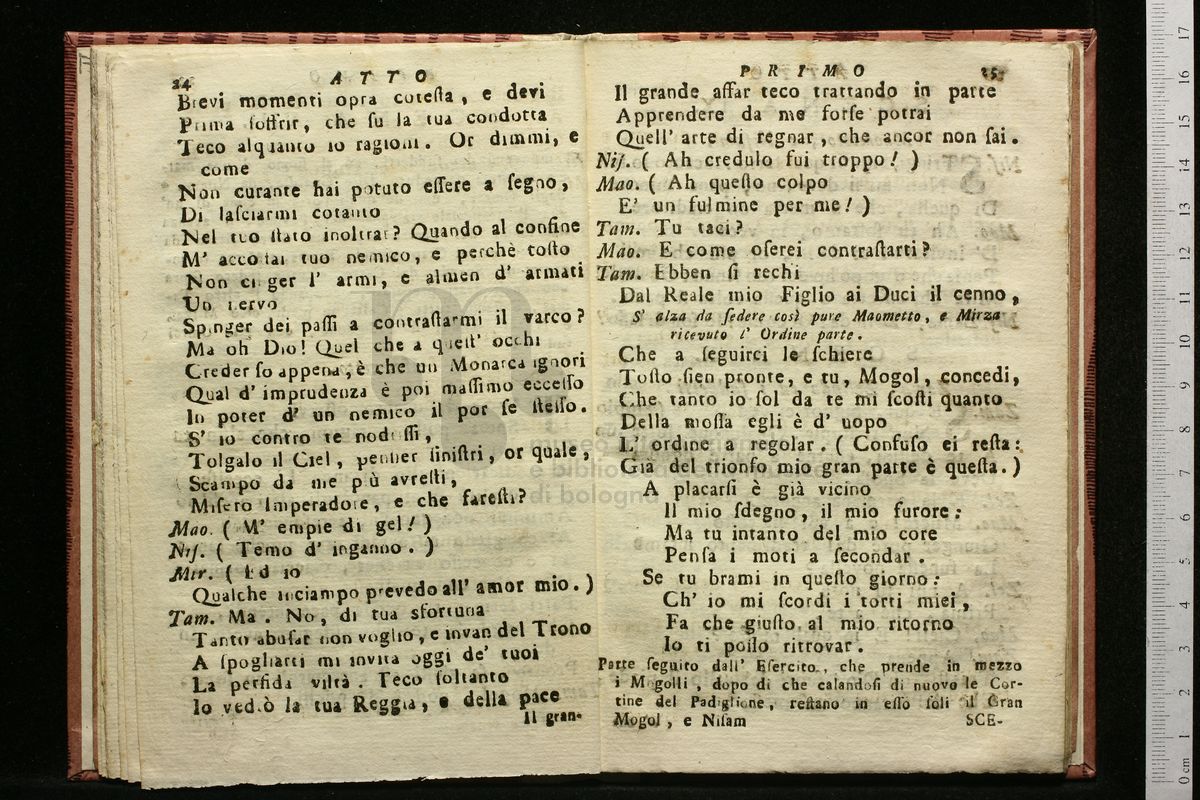 24 ATTO
Brevi momenti opra cotesta, e devi
Prima soffrir, che su la tua condotta
Teco alquanto io ragioni. Or dimmi, e
come
Non curante hai potuto essere a segno,
Di lasciarmi cotanto
Nel tuo stato inoltrar? Quando al confine
M' accostai tuo nemico, e perchè tosto
Non cinger l' armi, e almen d' armati
Un nervo
Spinger dei passi a contrastarmi il varco?
Ma oh Dio! Quel che a quest' occhi
Creder so appena, è che un Monarca ignori
Qual d' imprudenza è poi massimo eccesso
In poter d' un nemico il por se stesso.
S' io contro te nodrissi,
Tolgalo il Ciel, pensier sinistri, or quale,
Scampo da me più avresti,
Misero Imperadore, e che faresti?
Mao. ( M' empie di gel! )
Nis. ( Temo d' inganno. )
Mir. ( Ed io
Qualche inciampo prevedo all' amor mio. )
Tam. Ma. No, di tua sfortuna
Tanto abusar non voglio, e invan del Trono
A spogliarti mi invita oggi de' tuoi
La perfida viltà. Teco soltanto
Io vedrò la tua Reggia, e della pace
Il gran-
PRIMO 25
Il grande affar teco trattando in parte
Apprendere da me forse potrai
Quell' arte di regnar, che ancor non sai.
Nis. ( Ah credulo fui troppo! )
Mao. ( Ah questo colpo
E' un fulmine per me! )
Tam. Tu taci?
Mao. E come oserei contrastarti?
Tam. Ebben si rechi
Dal Reale mio Figlio ai Duci il cenno,
S' alza da sedere così pure Maometto, e Mirza
ricevuto l' Ordine parte.
Che a seguirci le schiere
Tosto sien pronte, e tu, Mogol, concedi,
Che tanto io sol da te mi scosti quanto
Della mossa egli è d' uopo
L' ordine a regolar. ( Confuso ei resta:
Già del trionfo mio gran parte è questa. )
A placarsi è già vicino
Il mio sdegno, il mio furore:
Ma tu intanto del mio core
Pensa i moti a secondar.
Se tu brami in questo giorno:
Ch' io mi scordi i torti miei,
Fa che giusto al mio ritorno
Io ti posso ritrovar.
Parte seguito dall' Esercito, che prende in mezzo
i Mogolli, dopo di che calandosi di nuovo le Cor-
tine del Padiglione, restano in esso soli il Gran
Mogol, e Nisam
SCE-